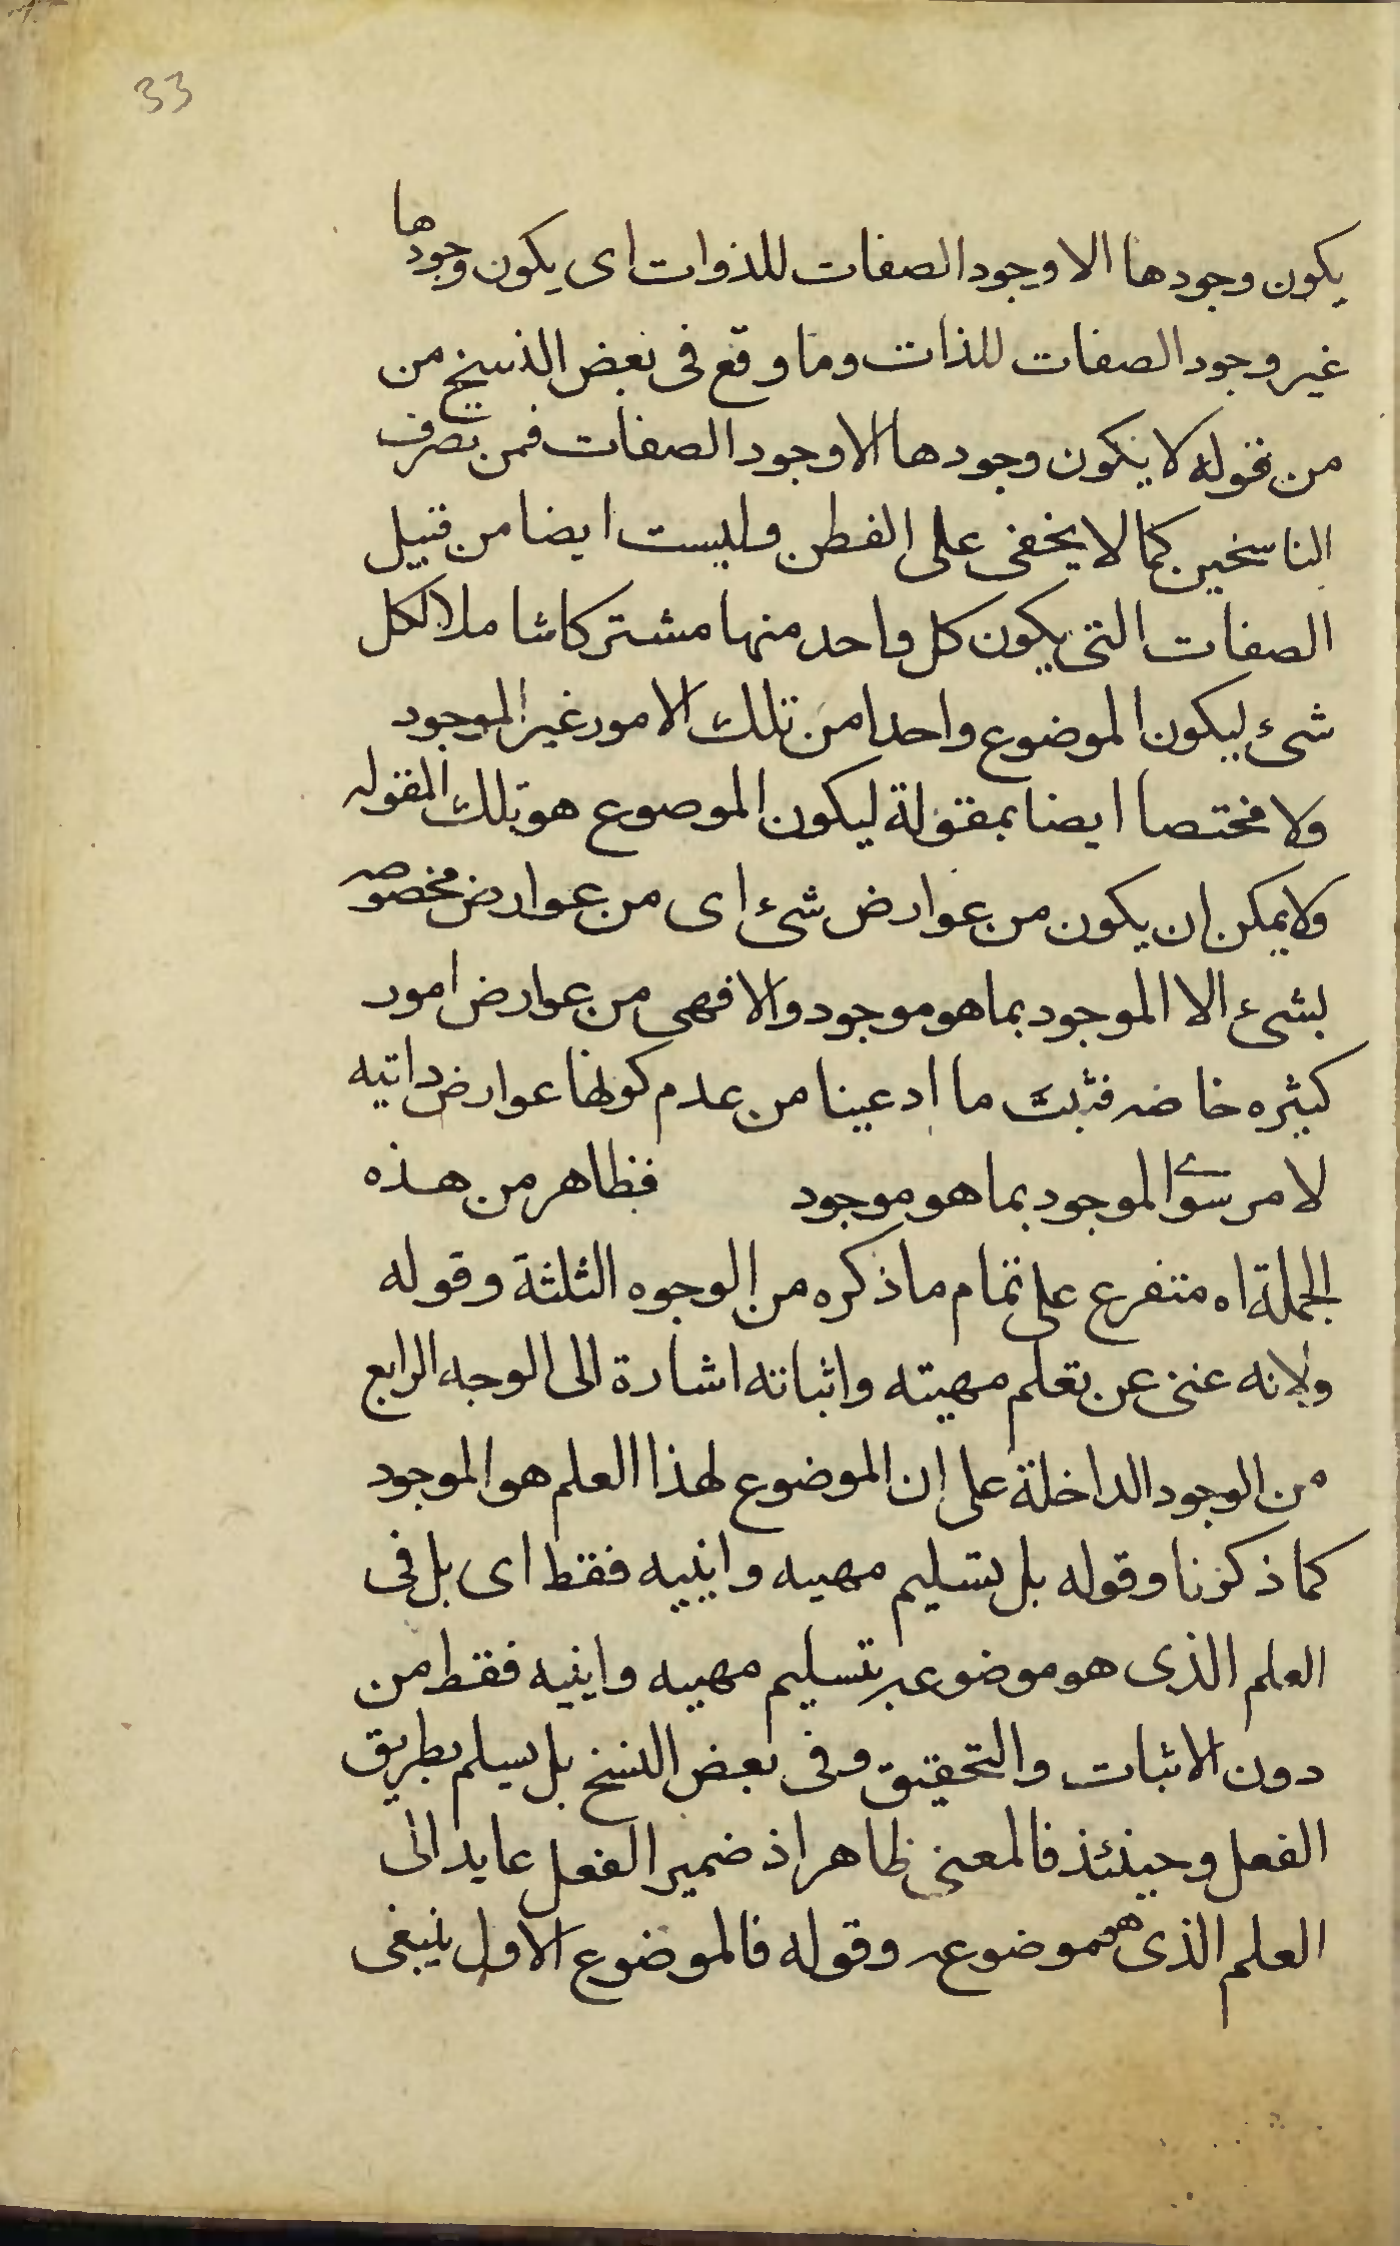 33
يكون وجودها الا وجود الصفات للذوات اى يكون وجودها
غير وجود الصفات للذات وما وقع فى بعض النسخ من
من قوله لا يكون وجودها الا وجود الصفات فمن تصرف
الناسخين كما لا يخفى على الفطن وليست ايضا من قبيل
الصفات التى يكون كل واحد منها مشتركا شاملا لكل
شىء ليكون الموضوع واحدا من تلك الامور غير الموجود
ولا مختصا ايضا بمقولة ليكون الموصوع هو تلك المقوله
ولا يمكن ان يكون من عوارض شىء اى من عوارض مخصوصه
بشىء الا الموجود بما هو موجود والا فهى من عوارض امور
كثيره خاضه فثبت ما ادعينا من عدم كونها عوارض داتيه
لامر سوى الموجود بما هو موجود فظاهر من هذه
الجملة اه متفرع على تمام ما ذكره من الوجوه الثلثة وقوله
ولانه غنى عن تعلم مهيته واثباته اشارة الى الوجه الرابع
من الوجود الداخلة على ان الموضوع لهذا العلم هو الموجود
كما ذكرنا وقوله بل بتسليم مهيه وانيبه فقط اى بل فى
العلم الذى هو موضوعه بتسليم مهيه وانيه فقط من
دون الاثبات والتحقيق وفى بعض النسخ بل يسلم بطريق
الفعل وحينئذ فالمعنى ظاهر اذ ضمير الفعل عايد الى
العلم الذى هو موضوعه وقوله فالموضوع الاول ينبغى